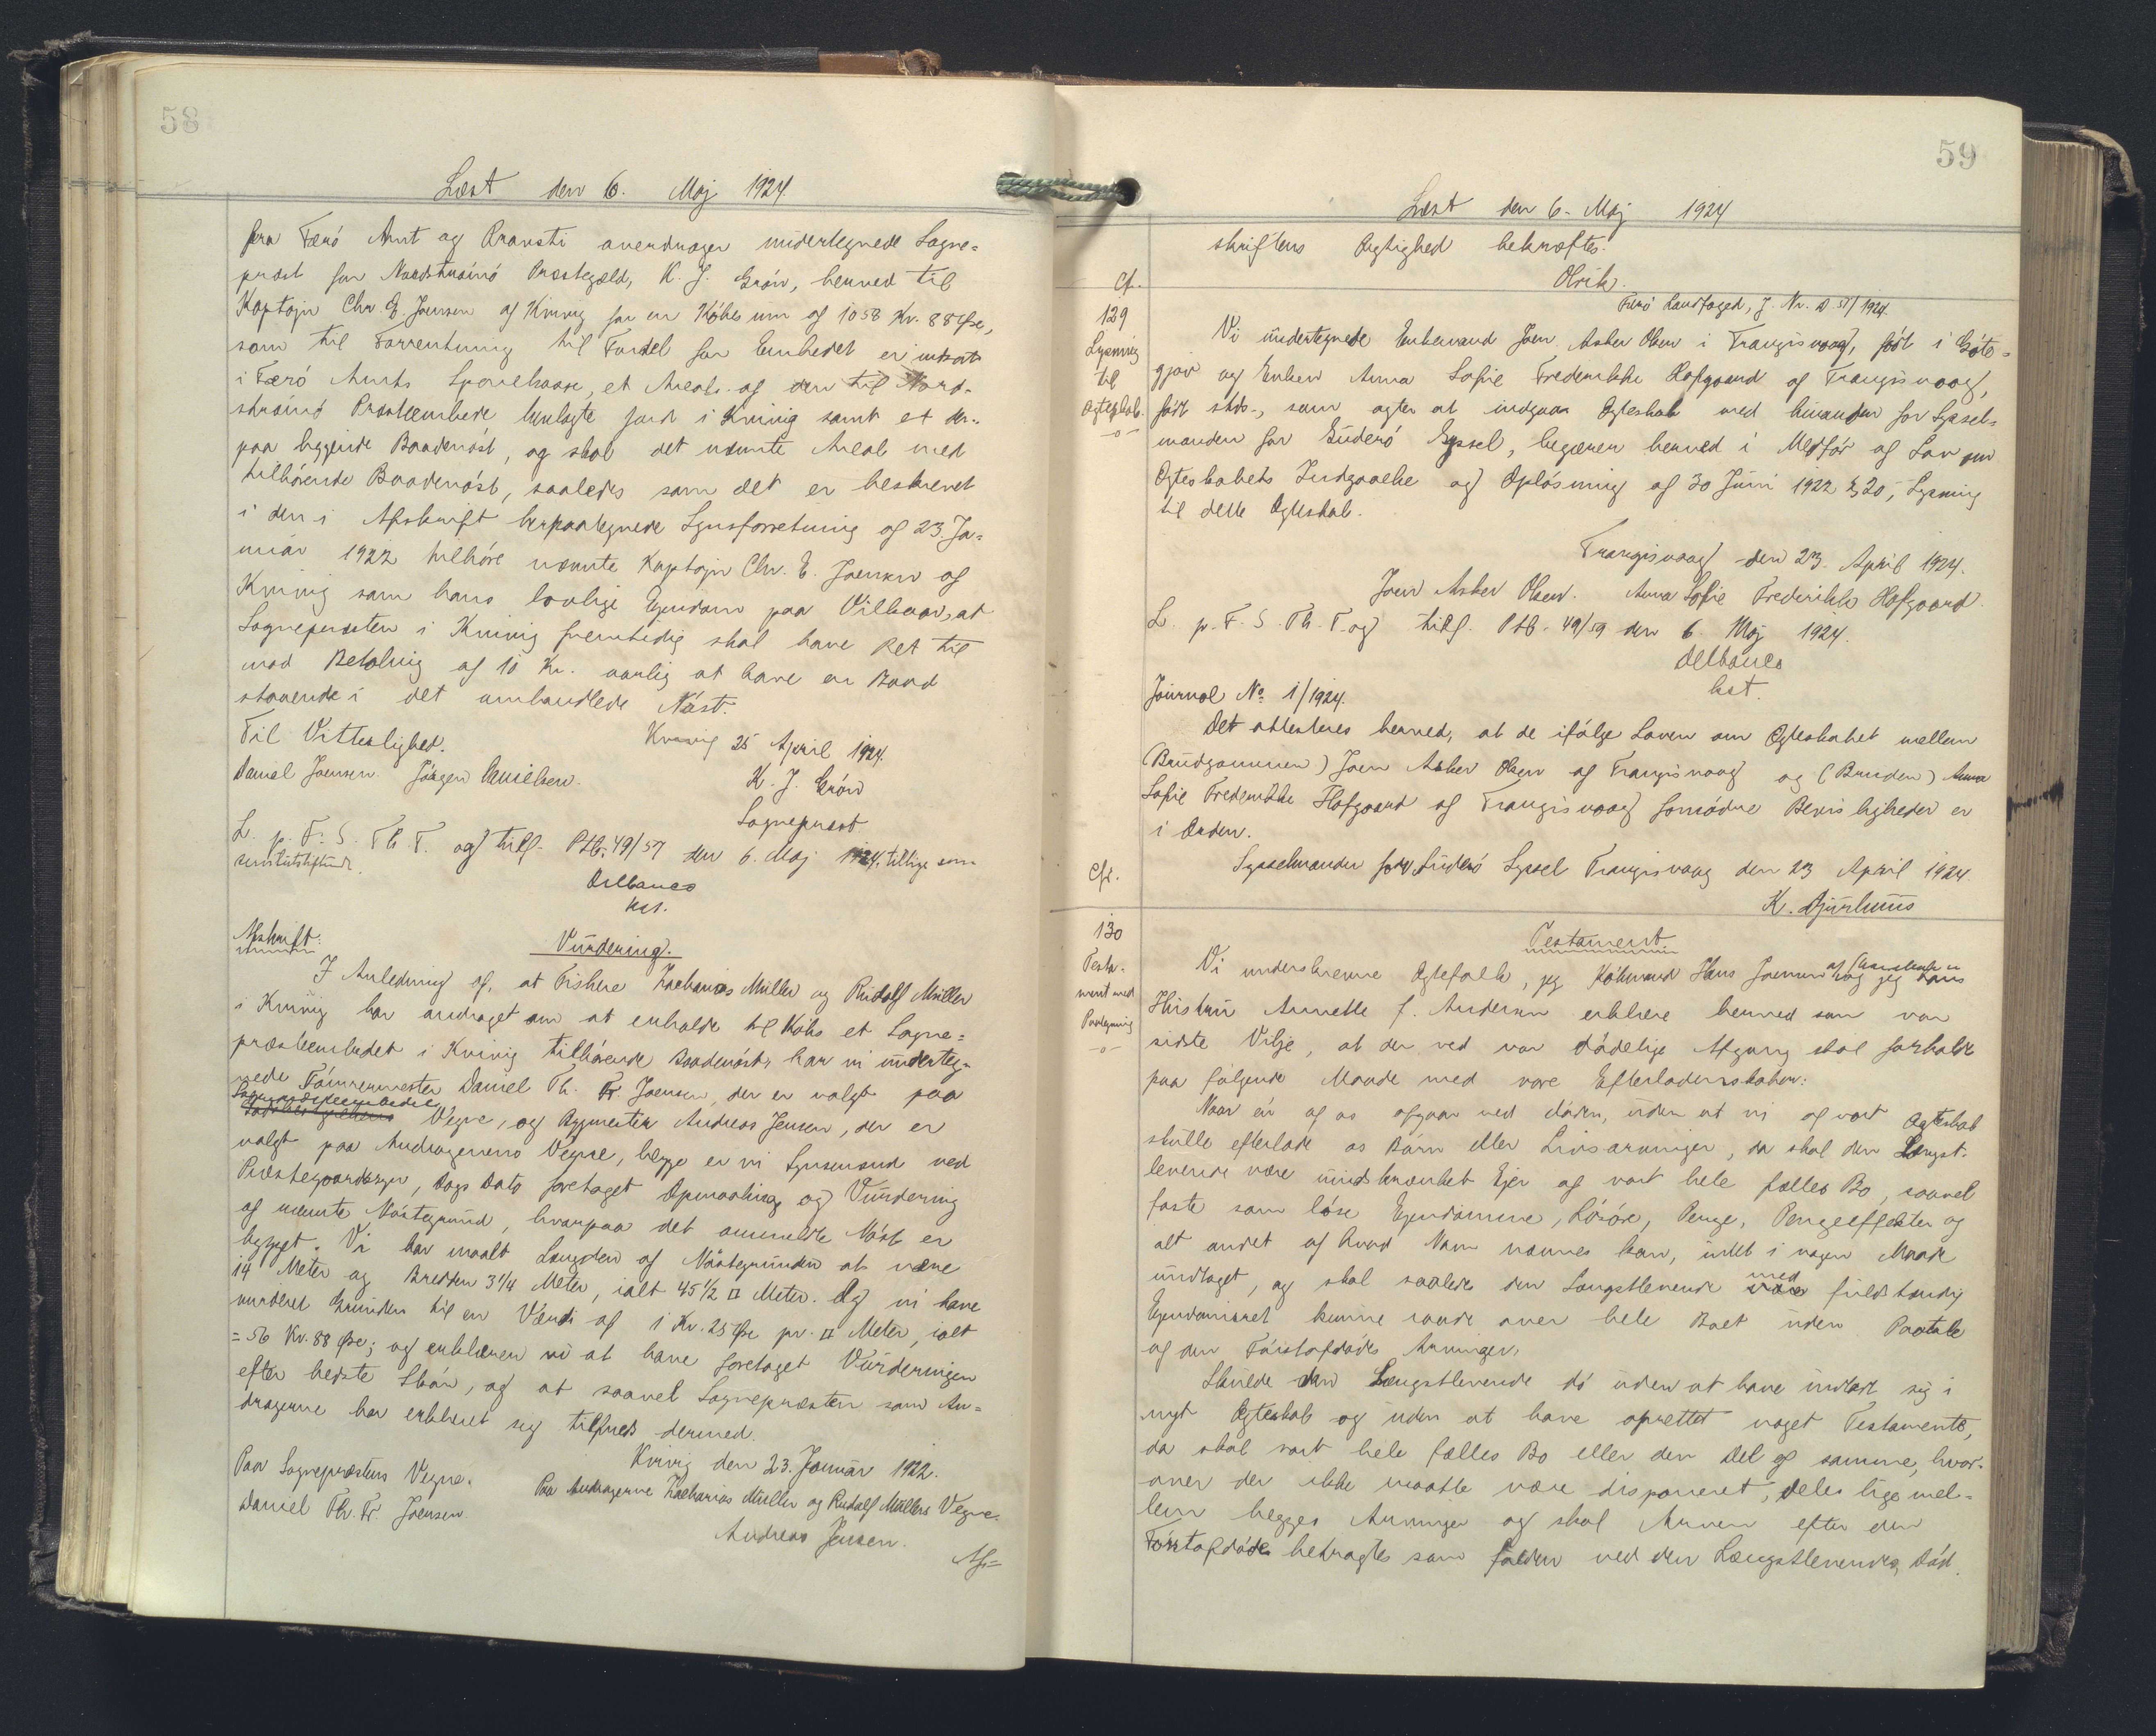 58
Læst den 6. Maj 1924.
fra Færö Amt og Provsti overdrager undertegnede Sogne=
præst for Nordstrømö Præstegæld, K. J. Grön, herved til
Kaptajn Chr. E. Joensen af Kvivig for en Købesum af 1058 Kr. 88 Øre,
som til Forrentning til Fordel for Embedet er indsat
i Færö Amts Sparekasse, et Areal af den til Nord-
strømö Præsteembede henlagte Jord i Kvivig samt et der-
paa liggende Baadenöst, og skal det nævnte Areal med
tilhörende Baadenöst, saaledes som det er beskrevet
i den i Afskrift herpaategnede Synsforretning af 23. Ja-
nuar 1922 tilhöre nævnte Kaptajn Chr. E. Joensen af
Kvivig som hans lovlige Ejendom paa Vilkaar, at
Sognepræsten i Kvivig fremtidig skal have Ret til
mod Betaling af 10 Kr. aarlig at have en Baad
staaende i det omhandlede Nöst.
Til Vitterlighed. Kvivig 25 April 1924.
Daniel Joensen. Jörgen Danielsen. K. J. Grön
Sognepræst
L. p. F. S. Th. T. og tilf. Ptb. 49/57 den 6. Maj 1924. tillige som
servitutstiftende.
Delbanco
kst.
Afskrift: Vurdering.
I Anledning af, at Fiskere Zacharias Müller og Rudolf Müller
i Kvivig har andraget om at erholde til Købs et Sogne=
præsteembedet i Kvivig tilhörende Baadenöst, har vi underteg-
nede Tömrermester Daniel Th. Fr. Joensen, der er valgt paa
Sognepræsteembedets
Vegne, og Bygmester Andreas Jensen, der er
valgt paa Andragernes Vegne, begge er vi Synsmænd ved
Præstegaardssyn, Dags Dato foretaget Opmaaling og Vurdering
af nævnte Nöstegrund, hvorpaa det anmeldte Nöst er
bygget. Vi har maalt Længden af Nöstegrunden at være
14 Meter og Bredden 3 1/4 Meter, ialt 45 1/2 □ Meter. Og vi have
vurderet Grunden til en Værdi af 1 Kr. 25 Øre pr. □ Meter, ialt
= 56 Kr. 88 Øre; og erklærer vi at have foretaget Vurderingen
efter bedste Skön, og at saavel Sognepræsten som An=
dragerne har erklæret sig tilfreds dermed.
Kvivig den 23. Januar 1922.
Paa Sognepræstens Vegne. Paa Andragerne Zacharias Müller og Rudolf Müllers Vegne.
Daniel Th. Fr. Joensen Andreas Jensen.
Af=
59
Læst den 6. Maj 1924
skriftens Rigtighed bekræftes.
Olrik.
Færö Landfoged, J. Nr. D. 51/1924.
Cf.
129
Lysning
til
Ægteskab.
Vi undertegnede Enkemand Joen Asker Olsen i Trangisvaag, födt i Göte-
gjov og Enken Anna Sofie Frederikke Hofgaard af Trangisvaag,
födt stds., som agter at indgaa Ægteskab med hinanden for Syssel-
manden for Suderö Syssel, begærer herved i Medför af Lov om
Ægteskabets Indgaaelse og Oplösning af 30 Juni 1922 § 20, Lysning
til dette Ægteskab.
Trangisvaag den 23. April 1924.
Joen Asker Olsen. Anna Sofie Frederikke Hofgaard.
L. p. F. S. Th. T. og tilf. Ptb. 49/59 den 6. Maj 1924.
Delbanco
kst.
Journal No 1/1924.
Det attesteres herved, at de ifölge Loven om Ægteskabet mellem
(Brudgommen) Joen Asker Olsen af Trangisvaag og (Bruden) Anna
Sofie Frederikke Hofgaard af Trangisvaag fornödne Bevisligheder er
i Orden.
Sysselmanden for Suderö Syssel Trangisvaag den 23 April 1924.
K. Djurhuus
Cfr.
130
Testa-
ment med
Paategning
Testament.
Vi underskrevne Ægtefolk, jeg Köbmand Hans Joensen og jeg hans
Hustru Annette f. Andersen erklære herved som vor
sidste Vilje, at der ved vor dödelige Afgang skal forholdes
paa fölgende Maade med vore Efterladenskaber:
Naar én af os afgaar ved döden, uden at vi af vort Ægteskab
skulle efterlade os Börn eller Livsarvinger, da skal den Længst-
levende være uindskrænket Ejer af vort hele fælles Bo, saavel
faste som löse Ejendomme, Lösöre, Penge, Pengeeffekter og
alt andet af hvad Navn nævnes kan, intet i nogen Maade
undtaget, og skal saaledes den Længstlevende med fuldstændig
Ejendomsret kunne raade over hele Boet uden Paatale
af den Förstafdödes Arvinger.
Skulde den Længstlevende dö uden at have indladt sig i
nyt Ægteskab og uden at have oprettet noget Testamente,
da skal vort hele fælles Bo eller den Del af samme, hvor-
over der ikke maatte være disponeret, deles lige mel-
lem begges Arvinger og skal Arven efter den
Förstafdöde betragtes som falden ved den Længstlevendes Död.